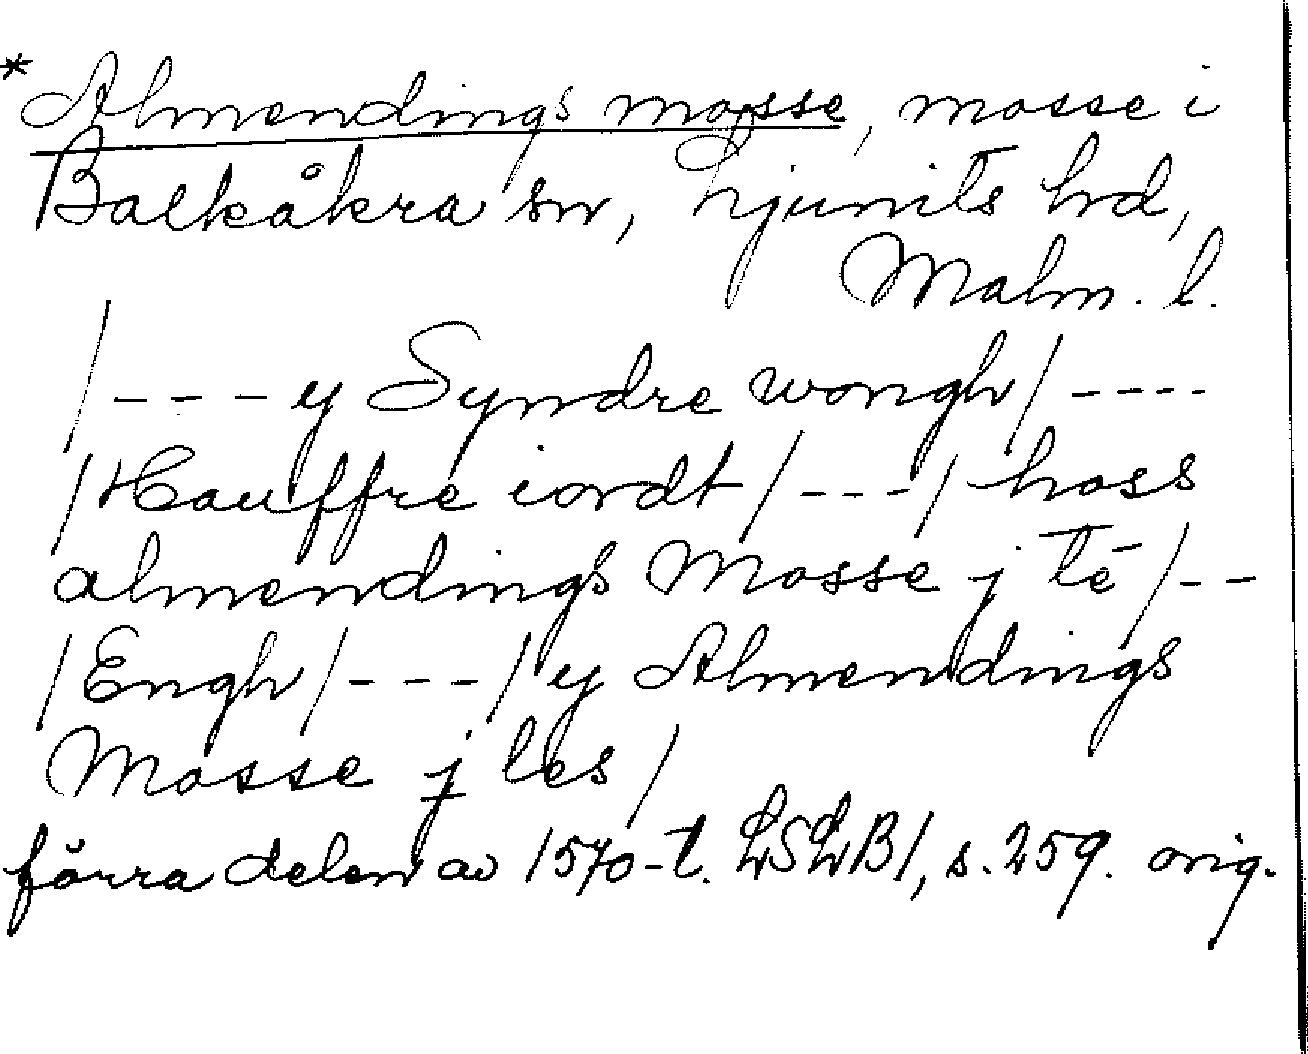 *Almendings mosse, mosse i
Balkåkra sn, Ljunits hd,
Malm. l.
/---y Syndre wongh/----
/Hauffre iordt/---/ hoss
almendings Mosse j tē/--
/Engh/---/ y Almendings
Mosse j les/
förra delen av 1570-t. LSLB1, s. 259. orig.